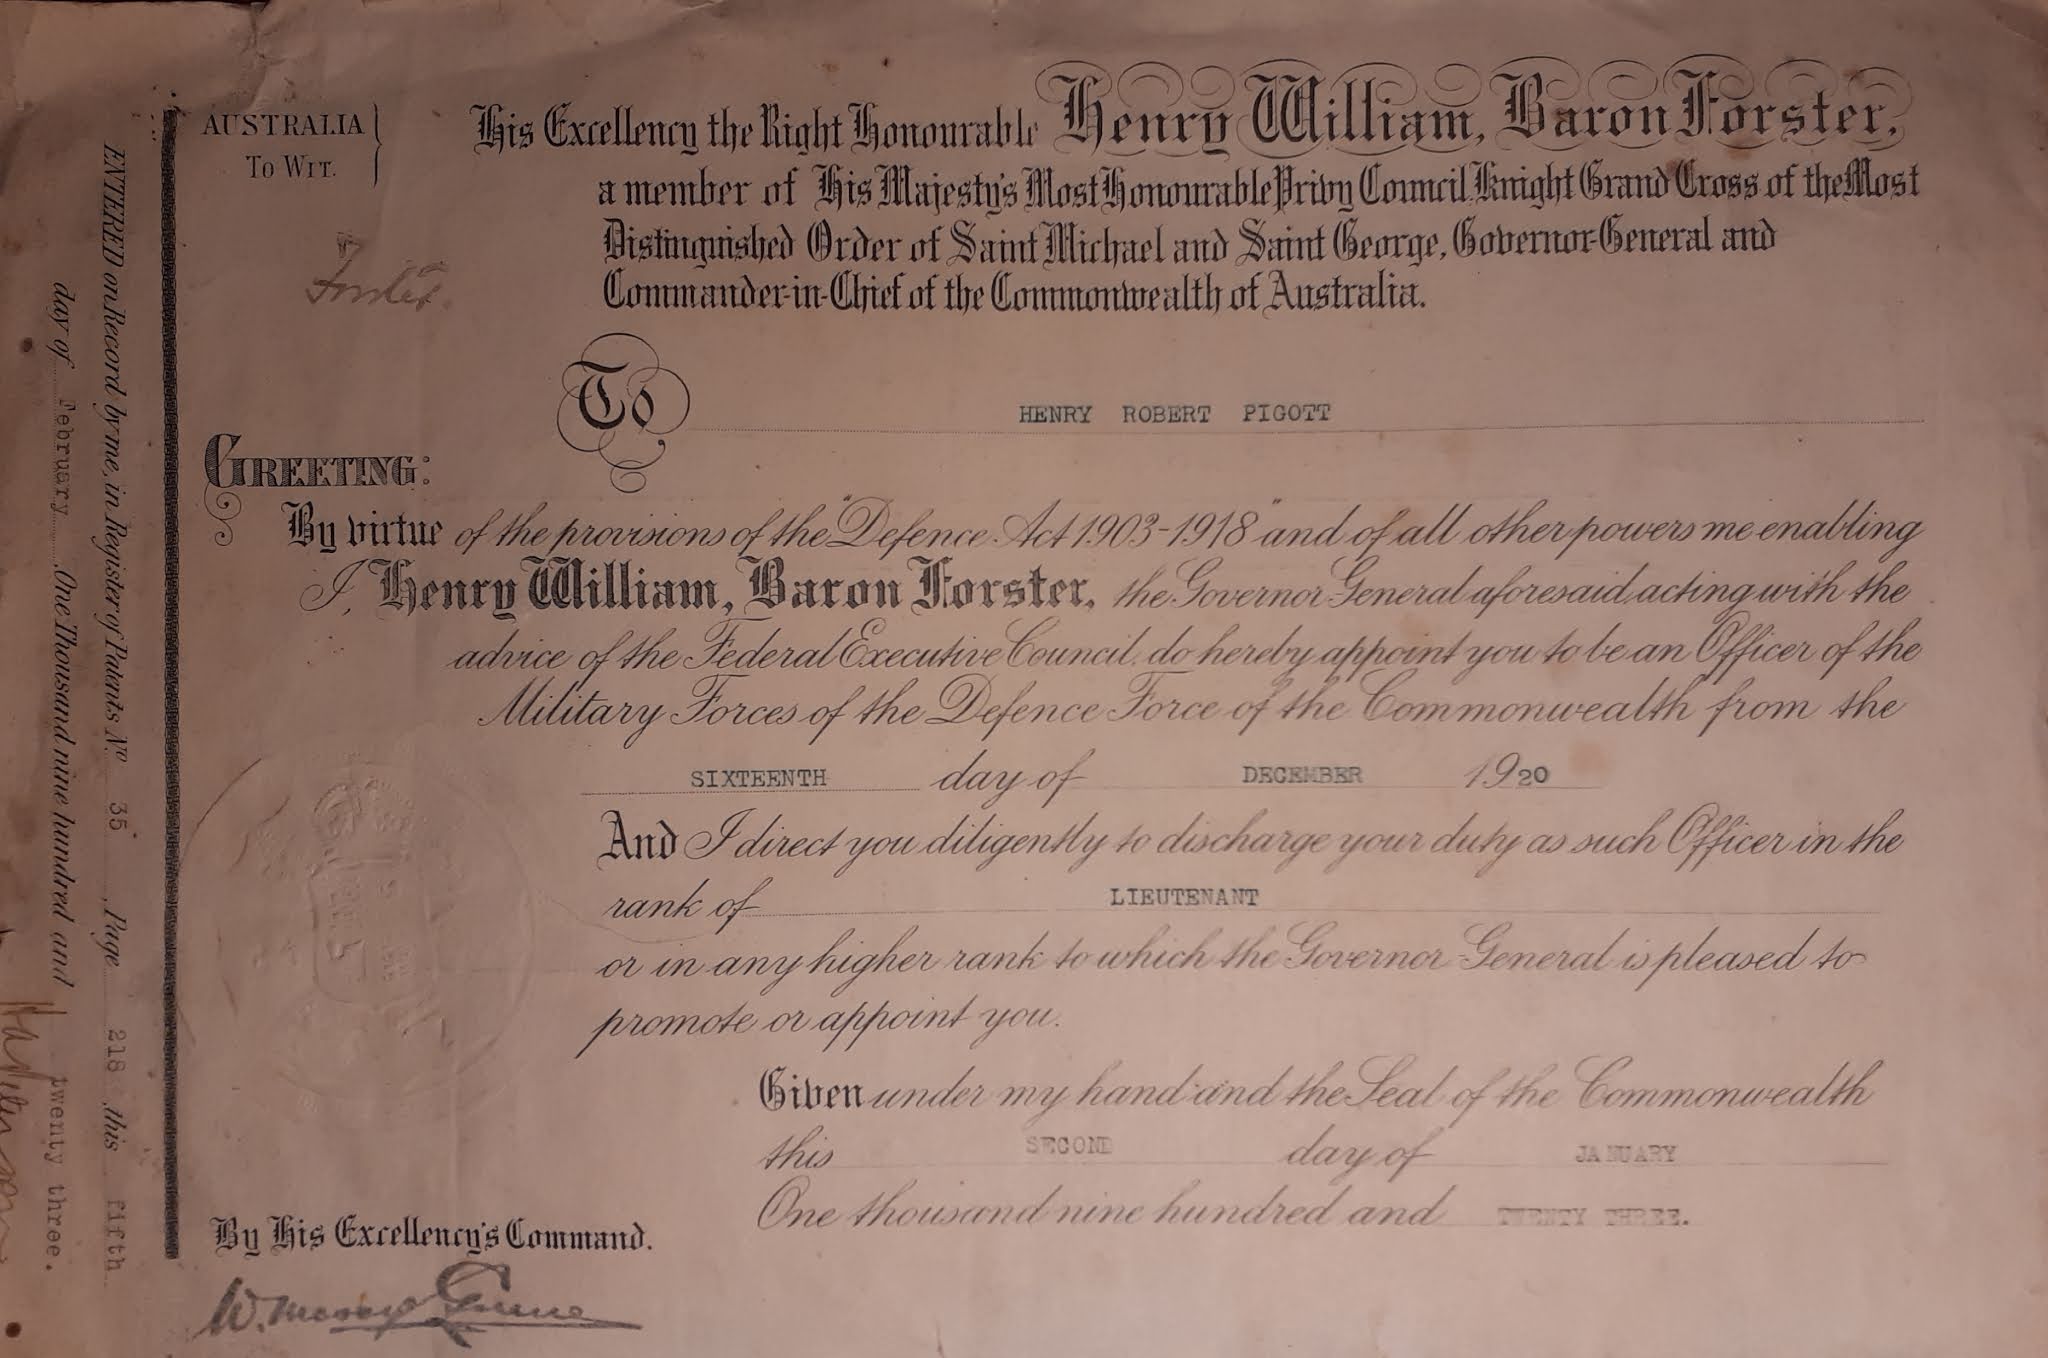 AUSTRALIA
TO WIT.
Forster.
His Excellency the Right Honourable Henry William, Baron Forster,
a member of His Majesty's Most Honourable Privy Council, Knight Grand Cross of the Most
Distinguished Order of Saint Michael and Saint George, Governor-General and
Commander-in-Chief of the Commonwealth of Australia.
To HENRY ROBERT PIGOTT
GREETING:
By virtue of the provisions of the "Defence Act 1903-1918" and of all other powers me enabling
I, Henry William, Baron Forster, the Governor General aforesaid, acting with the
advice of the Federal Executive Council, do hereby appoint you to be an Officer of the
Military Forces of the Defence Force of the Commonwealth from the
SIXTEENTH day of DECEMBER 1920
And I direct you diligently to discharge your duty as such Officer in the
rank of LIEUTENANT
or in any higher rank to which the Governor-General is pleased to
promote or appoint you.
Given under my hand and the Seal of the Commonwealth
this SECOND day of JANUARY
One thousand nine hundred and TWENTY THREE.
By His Excellency's Command.
W. Massy Greene
ENTERED on Record by me, in Register of Patents No. 35, Page 218 this fifth
day of February One Thousand nine hundred and twenty three.